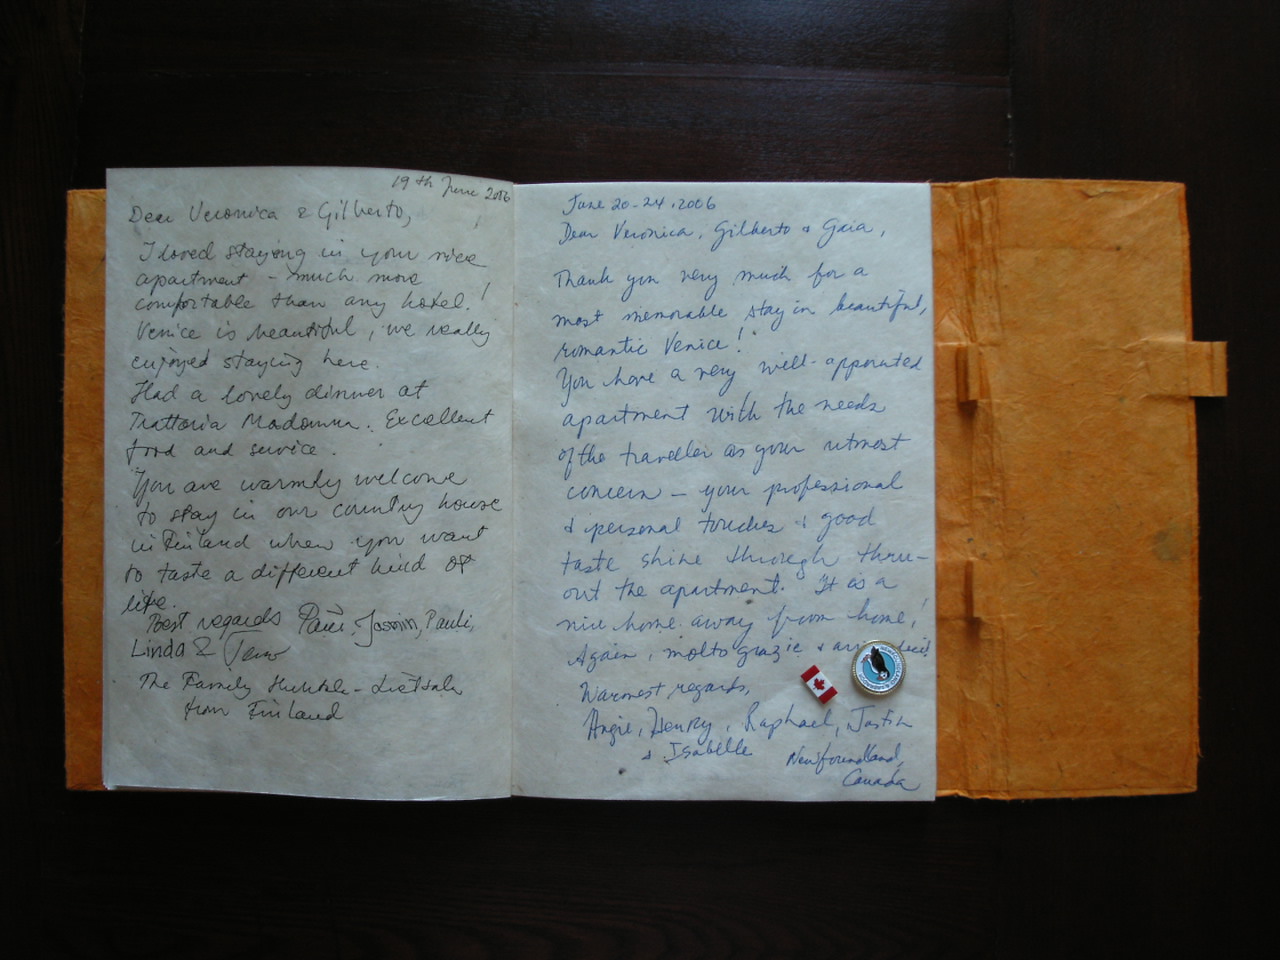 19th June 2006
Dear Veronica & Gilberto,
I loved staying in your nice
apartment - much more
comfortable than any hotel!
Venice is beautiful, we really
enjoyed staying here.
Had a lovely dinner at
Trattoria Madonna. Excellent
food and service.
You are warmly welcome
to stay in our country house
in Finland when you want
to taste a different kind of
life.
Best regards Jasmin, Pauli,
Linda &
The Family
from Finland
June 20-24, 2006
Dear Veronica, Gilberto & Gaia,
Thank you very much for a
most memorable stay in beautiful,
romantic Venice!
You have a very well-appointed
apartment with the needs
of the traveller as your utmost
concern – your professional
& personal touches & good
taste shine through thru-
out the apartment. It is a
nice home away from home!
Again, molto grazie &
Warmest regards,
Angie, Henry, Raphael, Justin
& Isabelle
Newfoundland,
Canada